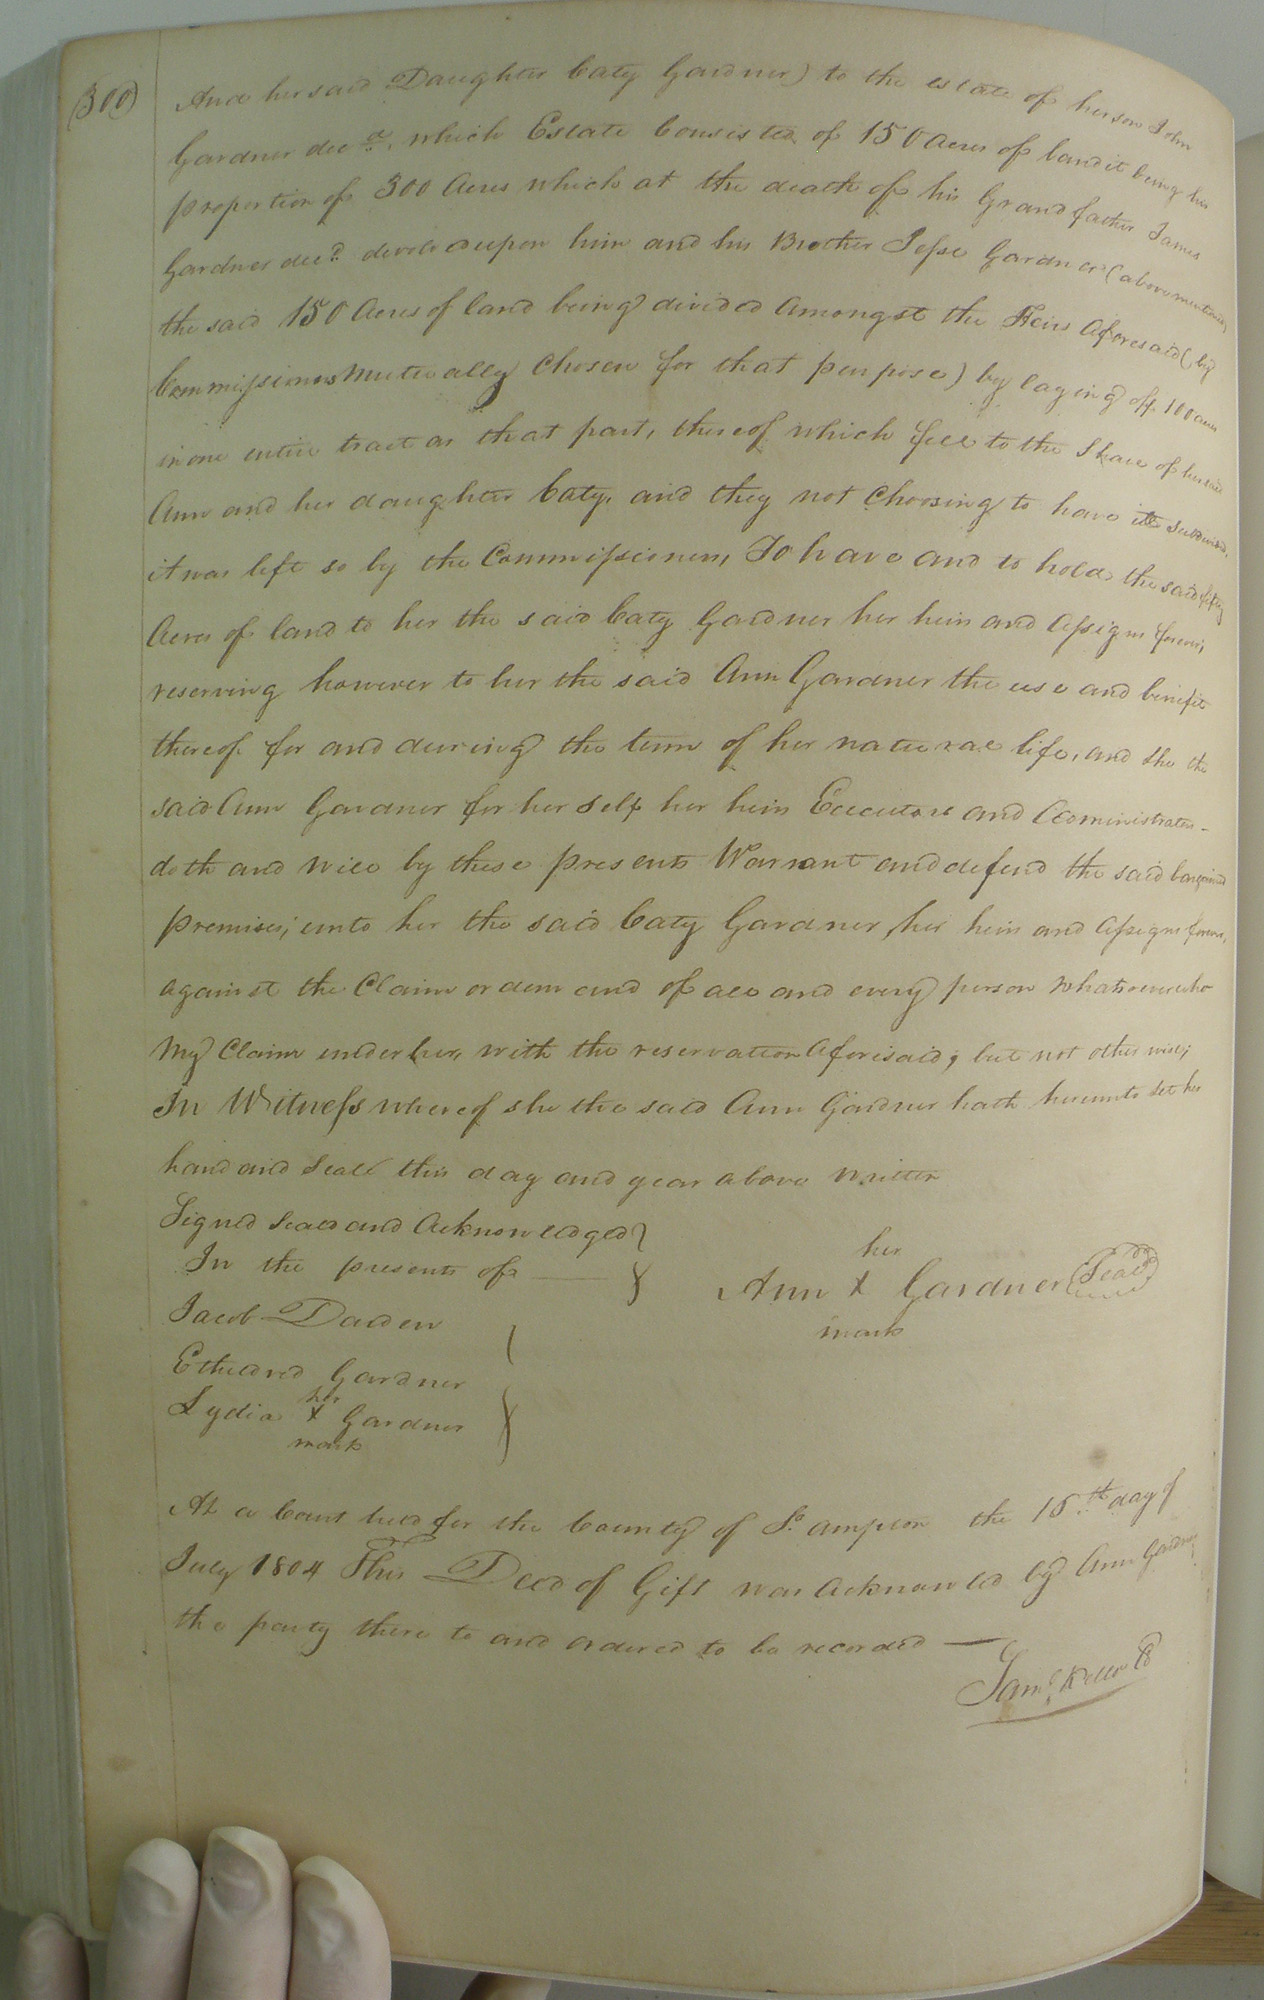 300
And her said Daughter Caty Gardner) to the estate of her son John
Gardner decd. which Estate Consisted of 150 Acres of land it being his
proportion of 300 Acres which at the death of his Grandfather James
Gardner decd. devolved upon him and his Brother Jesse Gardner (above mentioned)
the said 150 Acres of land being divided Amongst the Heirs Aforesaid (by
Commissioners Mutually Chosen for that purpose) by laying off 100 acres
in one entire tract as that part, thereof which fell to the Share of her said
Ann and her daughter Caty, and they not Choosing to have it subdivided,
it was left so by the Commissioners, To have and to hold the said fifty
Acres of land to her the said Caty Gardner her heirs and Assigns forever,
reserving however to her the said Ann Gardner the use and benefit
thereof for and during the term of her natural life, and She the
said Ann Gardner for her Self her heirs Executors and Administrators
doth and will by these presents Warrant and defend the said bargained
premises, unto her the said Caty Gardner, her heirs and Assigns forever,
against the Claim or demand of all and every person whatsoever who
My Claim under her, with the reservation Aforesaid, but not other wise;
In Witness whereof she the said Ann Gardner hath hereunto Set her
hand and Seal this day and year above written
Signed Seald and Acknowledged
In the presents of
her
Ann X Gardner (Seal)
mark
Jacob Darden
Etheldred Gardner
her
Lydia X Gardner
mark
At a Court held for the County of So. ampton the 15th day of
July 1804 This Deed of Gift was Acknowled by Ann Gardner
the party there to and ordered to be recorded
Saml. Kello CC